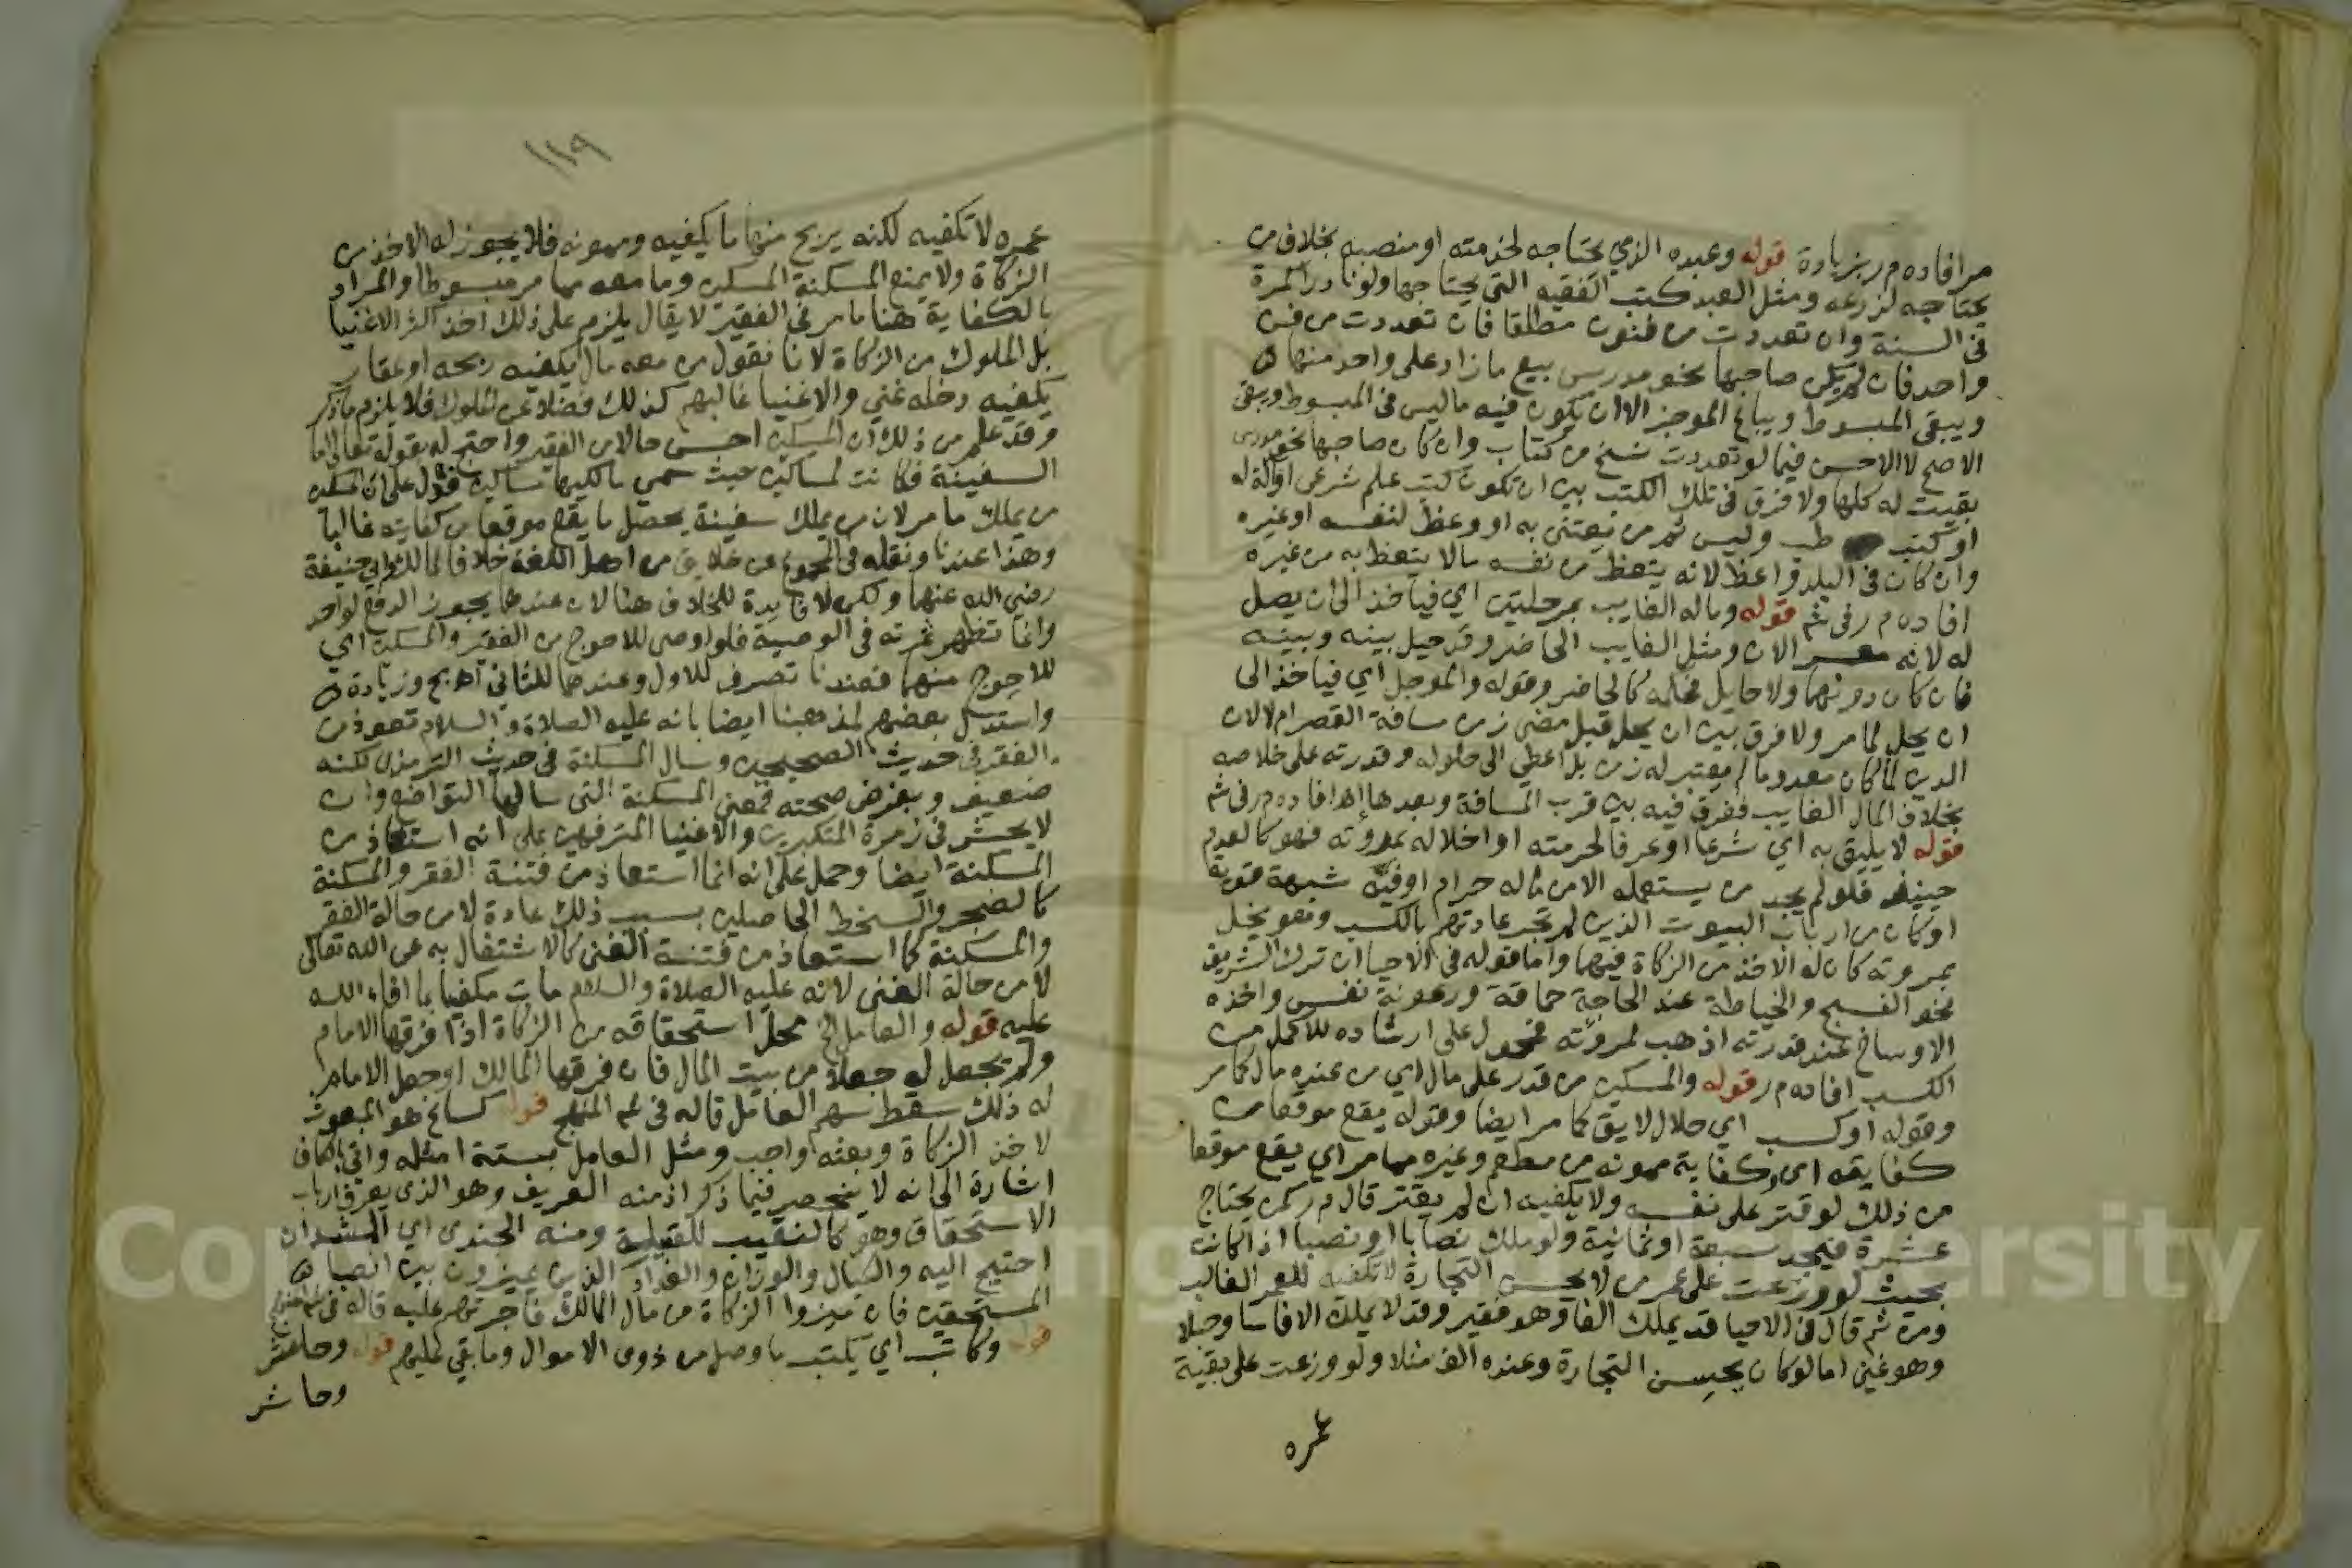 مر افاده م ر بزيادة قوله وعبده الذي يحتاجه لخدمته او منصبه بخلاف من
يحتاجه لزرعه ومثل العبد كتب الفقيه التي يحتاجها ولو نادرا كمرة
في السنة وان تعددت من فنون مطلقا فان تعددت من فن
واحد فان لم يكن صاحبها نحو مدرس بيع ما زاد على واحد منها
ويبقى المبسوط ويباع الموجز الا ان يكون فيه ما ليس في المبسوط ويبقى
الاصح لا الاحسن فيما لو تعددت نسخ من كتاب وان كان صاحبها نحو مدرس
بقيت له كلها ولا فرق في تلك الكتب بين ان تكون كتب علم شرعي او آلة له
او كتب طب وليس ثم من يعتني به او وعظ لنفسه او غيره
وان كان في البلد واعظ لانه يتعظ من نفسه ما لا يتعظ به من غيره
افاده م ر في شم قوله وماله الغايب بمرحلتين اي فياخذ الى ان يصل
له لانه معسر الان ومثل الغايب الحاضر وقد حيل بينه وبينه
فان كان دونهما ولا حايل فحكمه كالحاضر وقوله والموجل اي فياخذ الى
ان يحل لما مر ولا فرق بين ان يحل قبل مضي زمن مسافة القصر ام لا لان
الدين لما كان معدوما لم يعتبر له زمن بل اعطي الى حلوله وقدرته على خلاصه
بخلاف المال الغايب ففرق فيه بين قرب المسافة وبعدها اهـ افاده م ر في شم
قوله لا يليق به اي شرعا او عرفا لحرمته او اخلاله بمروته فهو كالعدم
حينيذ فلو لم يجد من يستعمله الا من ماله حرام او فيه شبهة قوية
او كان من ارباب البيوت الذين لم تجر عادتهم بالكسب وهو يخل
بمروته كان له الاخذ من الزكاة فيهما واما قوله في الاحيا ان ترك الشريف
نحو النسج والخياطة عند الحاجة حماقة ورعونة نفس واخذه
الاوساخ عند قدرته اذهب لمروته فمحمول على ارشاده للاكمل من
الكسب افاده م ر قوله والمسكين من قدر على مال اي من عنده مال كما مر
وقوله او كسب اي حلال لايق كما مر ايضا وقوله يقع موقعا من
كفايته اي وكفاية ممونه من مطعم وغيره مما مر اي يقع موقعا
من ذلك لو قتر على نفسه ولا يكفيه ان لم يقتر قال م ر كمن يحتاج
عشرة فيجد سبعة او ثمانية ولو ملك نصابا او نصبا اذا كانت
بحيث لو وزعت على عمر من لا يحسن التجارة لا تكفيه للعمر الغالب
ومن ثم قال في الاحيا قد يملك الفا وهو فقير وقد لا يملك الا فاسا وحبلا
وهو غني اما لو كان يحسن التجارة وعنده الف مثلا ولو وزعت على بقية
عمره
١١٩
عمره لا تكفيه لكنه يربح منها ما يكفيه وممونه فلا يجوز له الاخذ من
الزكاة ولا يمنع المسكنة المسكن وما معه مما مر مبسوطا والمراد
بالكفاية هنا ما مر في الفقير لا يقال يلزم على ذلك اخذ اكثر الاغنيا
بل الملوك من الزكاة لانا نقول من معه مال يكفيه ربحه او عقار
يكفيه دخله غني والاغنيا غالبهم كذلك فضلا عن الملوك فلا يلزم ما ذكر
وقد علم من ذلك ان المسكين احسن حالا من الفقير واحتج له بقوله تعالى اما
السفينة فكانت لمساكين حيث سمي مالكيها مساكين فدل على ان المسكين
من يملك ما مر لان من يملك سفينة يحصل ما يقع موقعا من كفايته غالبا
وهذا عندنا ونقله في المجموع عن خلايق من اهل اللغة خلافا لمالك وابي حنيفة
رضي الله عنهما ولكن لا فايدة للخلاف هنا لان عندهما يجوز الدفع لواحد
وانما تظهر ثمرته في الوصية فلو اوصى للاحوج من الفقير والمسكين اي
للاحوج منهما فعندنا تصرف للاول وعندهما للثاني اهـ ح وزيادة
واستدل بعضهم لمذهبنا ايضا بانه عليه الصلاة والسلام تعوذ من
الفقر في حديث الصحيحين وسال المسكنة في حديث الترمذي لكنه
ضعيف وبفرض صحته فمعنى المسكنة التي سالها التواضع وان
لا يحشر في زمرة المتكبرين والاغنيا المترفهين على انه استعاذ من
المسكنة ايضا وحمل على انه انما استعاذ من فتنة الفقر والمسكنة
كالضجر والسخط الحاصلين بسبب ذلك عادة لا من حالة الفقر
والمسكنة كما استعاذ من فتنة الغنى كالاشتغال به عن الله تعالى
لا من حالة الغنى لانه عليه الصلاة والسلام مات مكفيا بما افاء الله
عليه قوله والعامل الخ محل استحقاقه من الزكاة اذا فرقها الامام
ولم يجعل له جعلا من بيت المال فان فرقها المالك او جعل الامام
له ذلك سقط سهم العامل قاله في شم المنهج قوله كساع هو المبعوث
لاخذ الزكاة وبعثه واجب ومثل العامل بستة امثلة واتى بالكاف
اشارة الى انه لا ينحصر فيما ذكر اذ منه العريف وهو الذي يعرف ارباب
الاستحقاق وهو كالنقيب للقبيلة ومنه الجندي اي المشد ان
احتيج اليه والكيال والوزان والعداد الذين يميزون بين انصبا
المستحقين فان ميزوا الزكاة من مال المالك فاجرتهم عليه قاله في شم المنهج
قوله وكاتب اي يكتب ما وصل من ذوي الاموال وما بقي عليهم قوله وحاشر
وحاشر